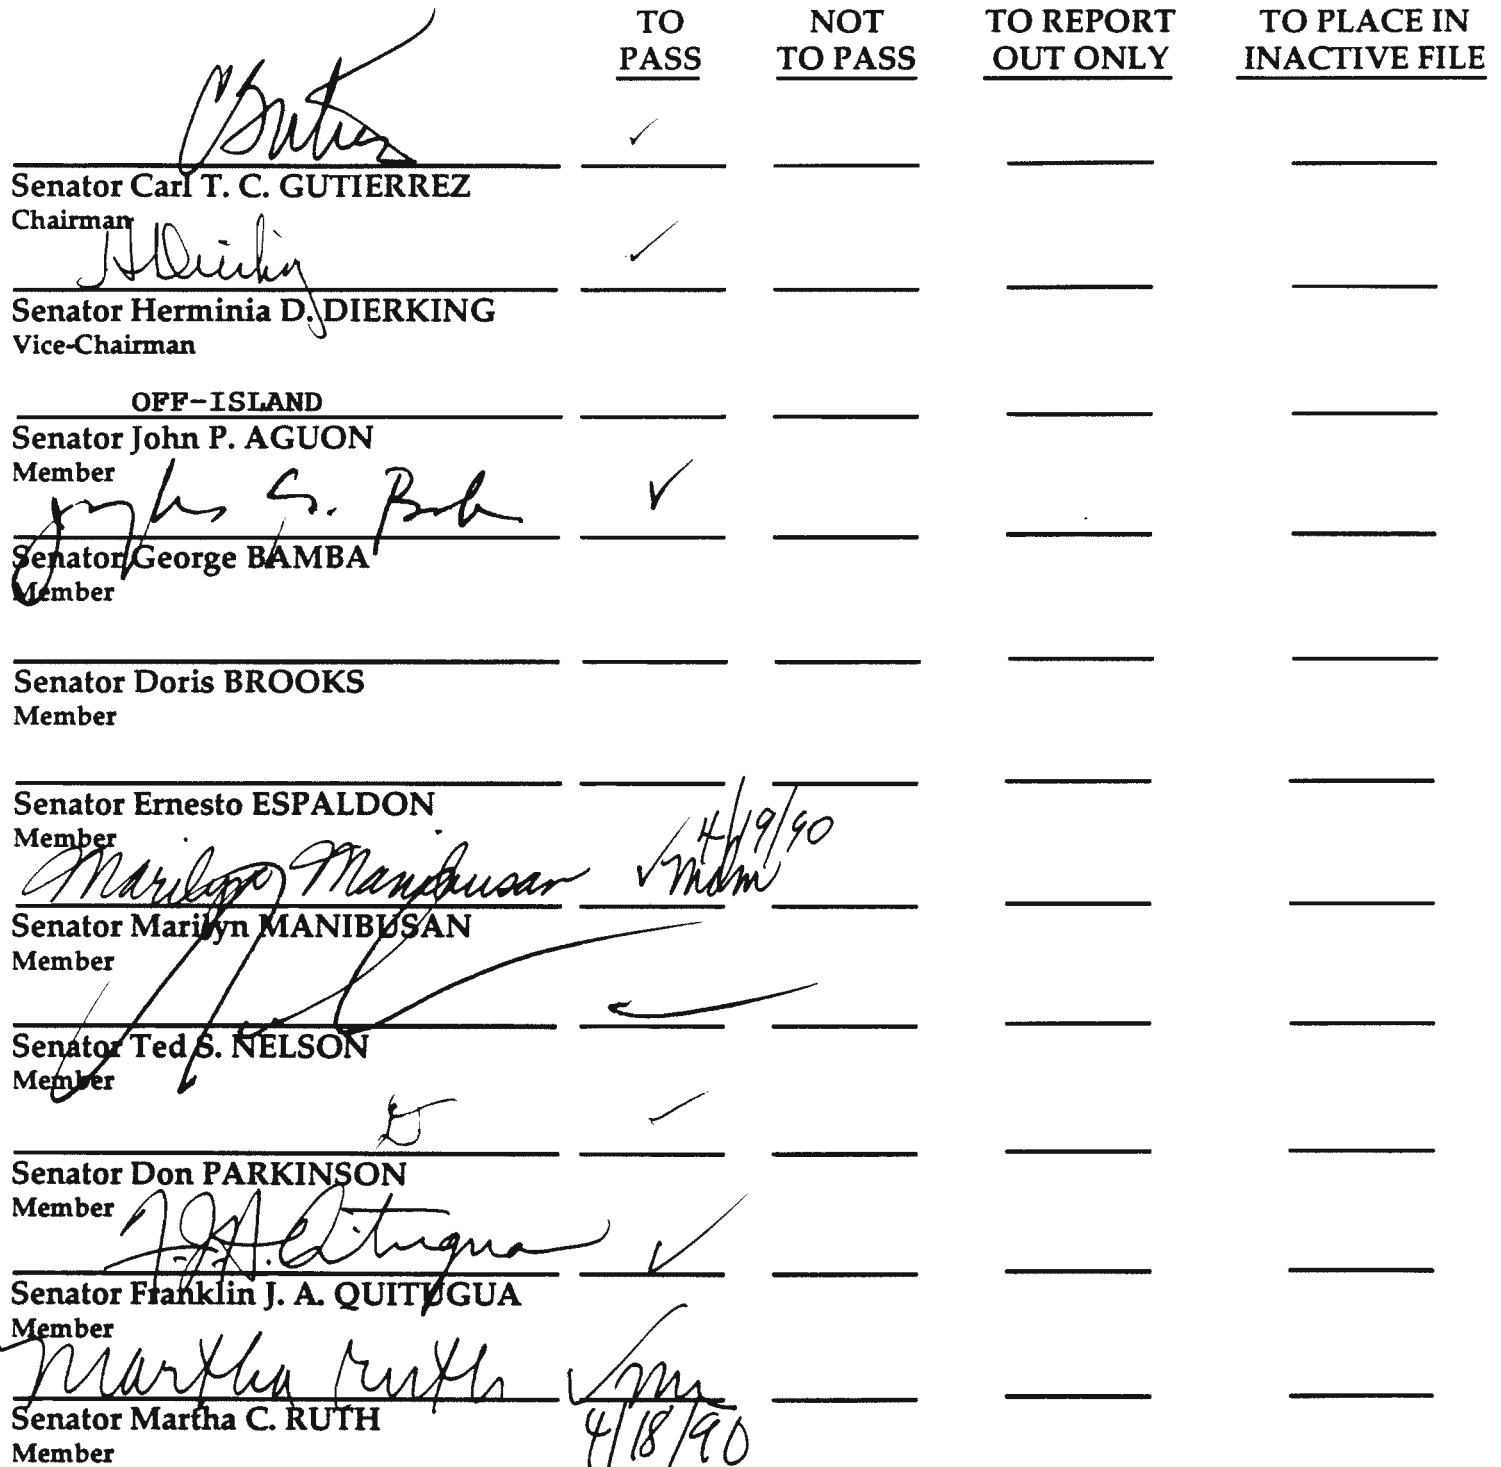 TO PASS NOT TO PASS TO REPORT OUT ONLY TO PLACE IN INACTIVE FILE
✓
Senator Carl T. C. GUTIERREZ
Chairman
HDierking ✓
Senator Herminia D. DIERKING
Vice-Chairman
OFF-ISLAND
Senator John P. AGUON
Member
✓
Senator George BAMBA
Member
Senator Doris BROOKS
Member
Senator Ernesto ESPALDON
Member
4/19/90
Marilyn Manibusan ✓ mdm
Senator Marilyn MANIBUSAN
Member
Senator Ted S. NELSON
Member
✓
Senator Don PARKINSON
Member
F.J.A. Quitugua ✓
Senator Franklin J. A. QUITUGUA
Member
Martha Ruth ✓
Senator Martha C. RUTH
4/18/90
Member